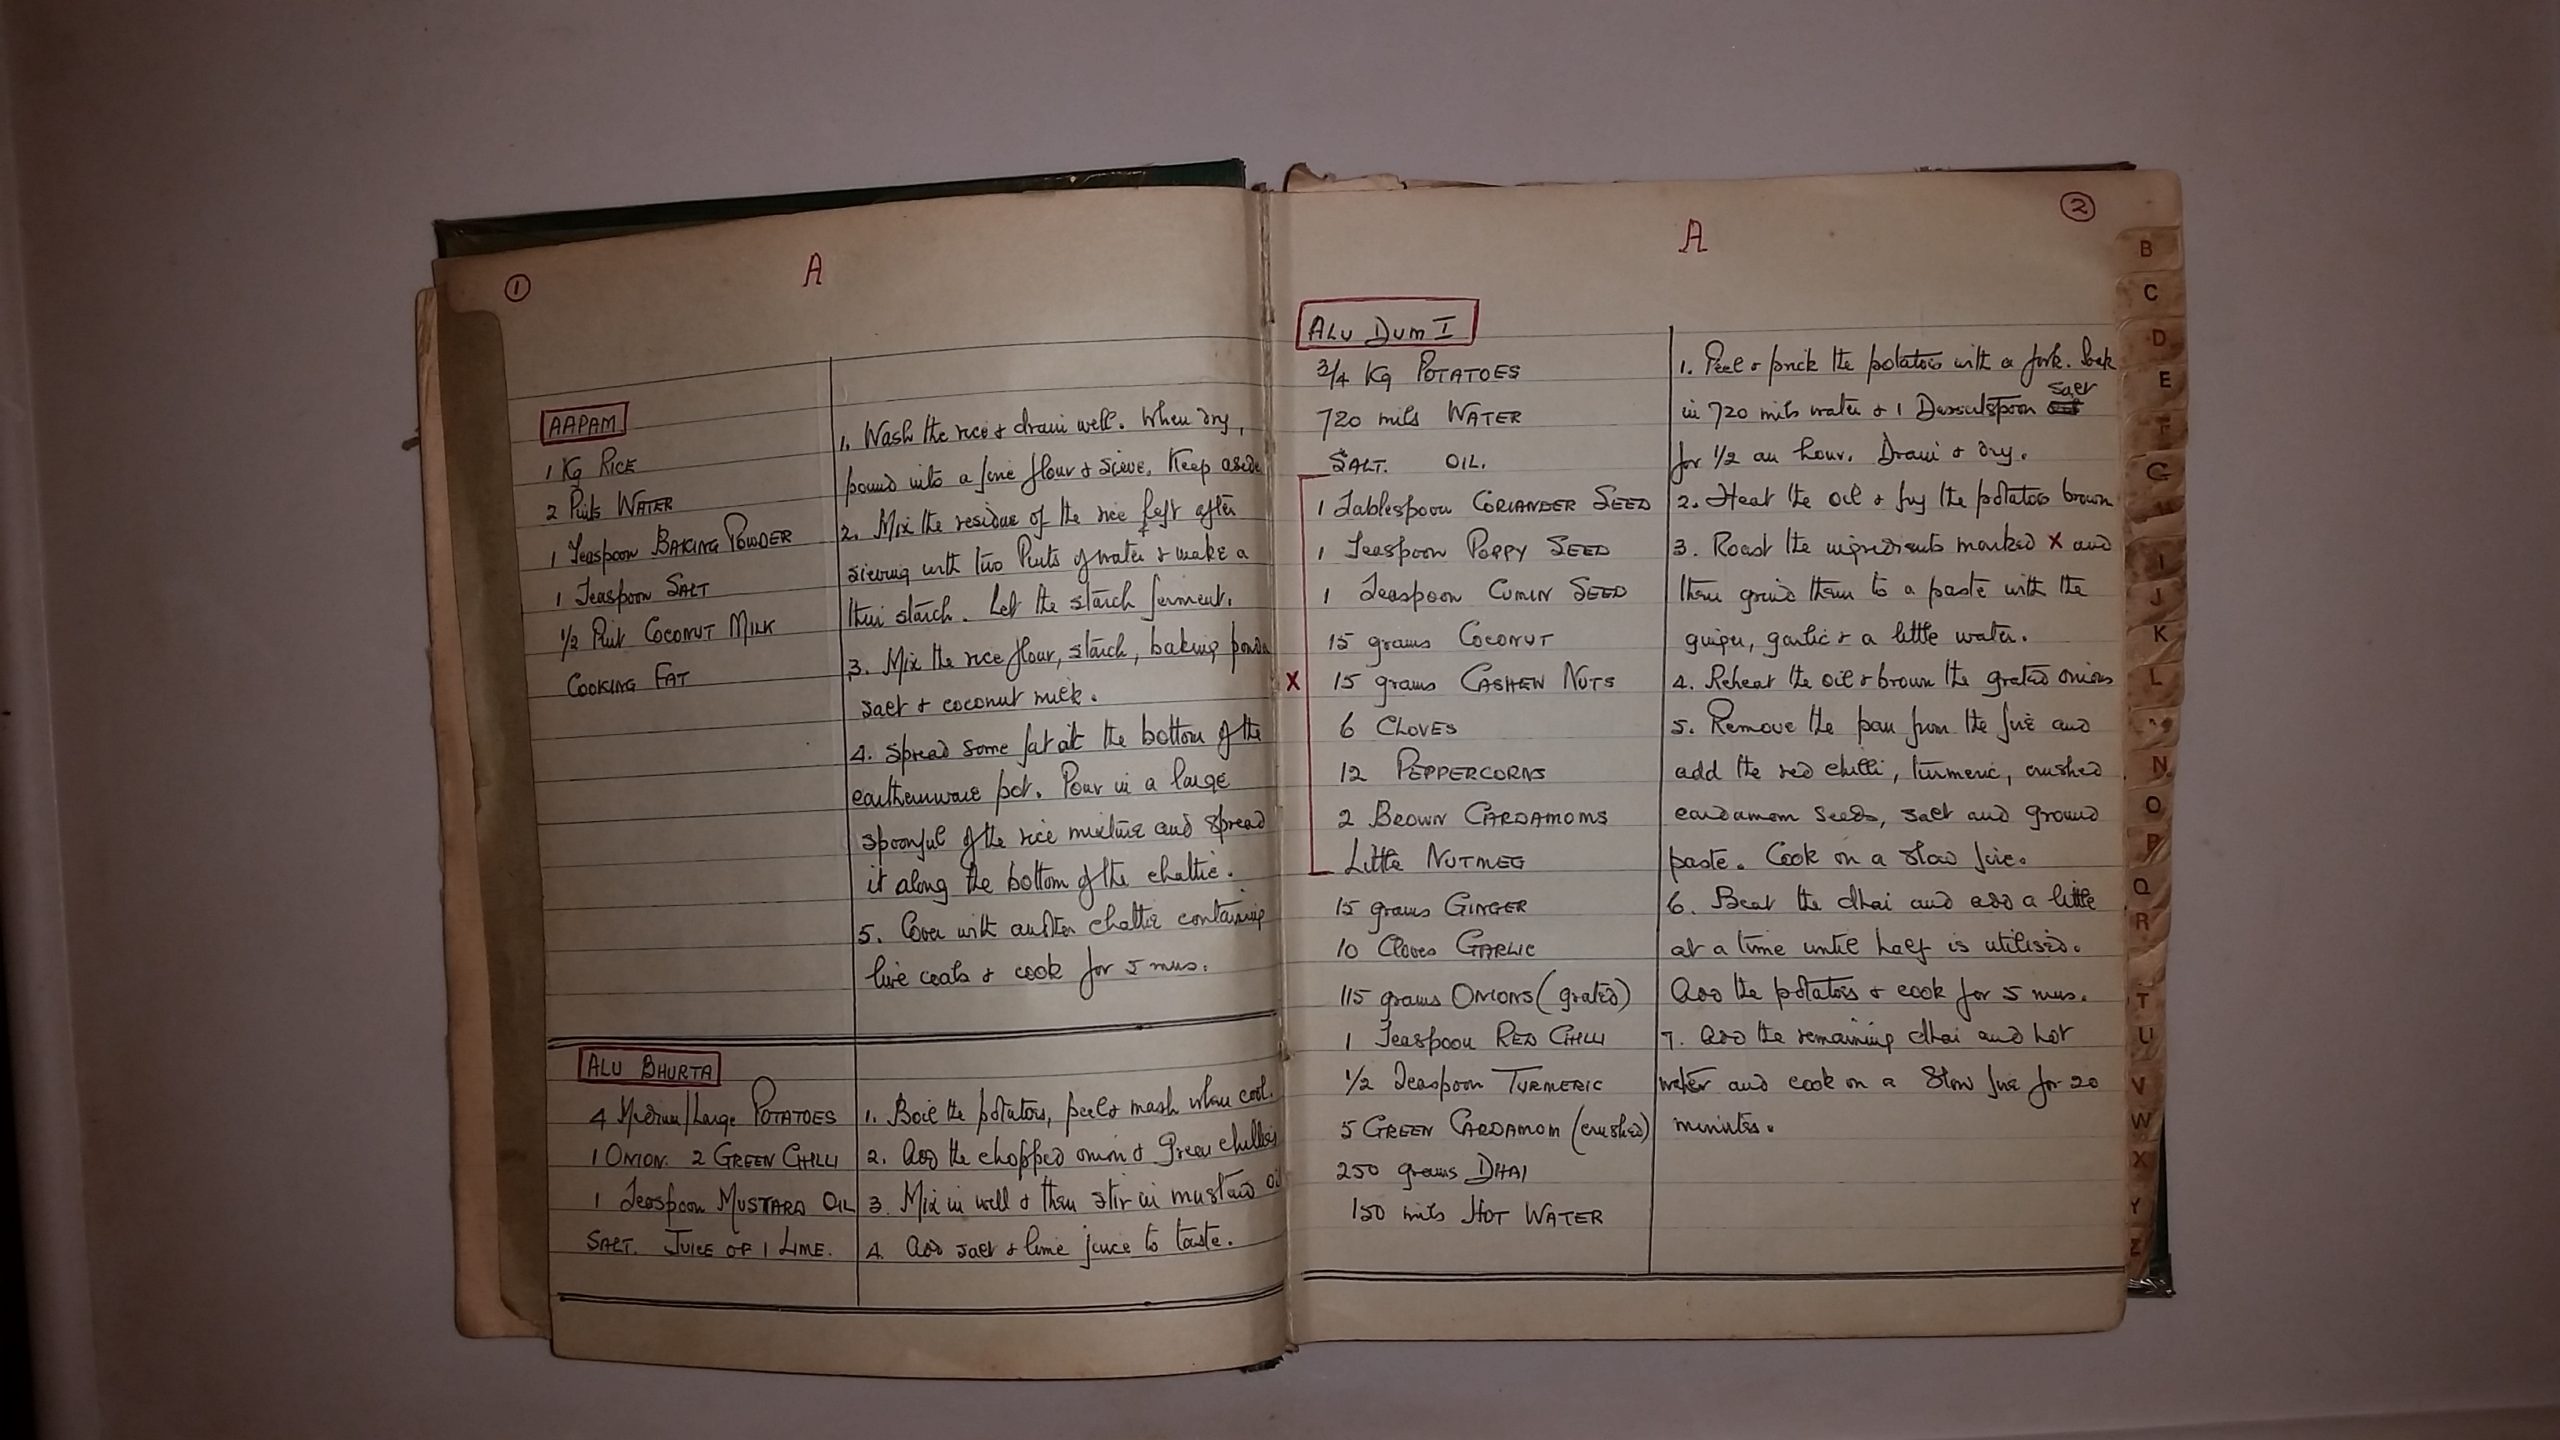 1
A
AAPAM
1 Kg RICE
2 Pints WATER
1 Teaspoon BAKING POWDER
1 Teaspoon SALT
1/2 Pint COCONUT MILK
COOKING FAT
1. Wash the rice & drain well. When dry,
pound into a fine flour & sieve. Keep aside
2. Mix the residue of the rice left after
sieving with two Pints of water & make a
thin starch. Let the starch ferment.
3. Mix the rice flour, starch, baking powder
salt & coconut milk.
4. Spread some fat at the bottom of the
earthenware pot. Pour in a large
spoonful of the rice mixture and spread
it along the bottom of the chattie.
5. Cover with another chattie containing
live coals & cook for 5 mns.
ALU BHURTA
4 Medium/Large POTATOES
1 ONION. 2 GREEN CHILLI
1 Teaspoon MUSTARD OIL
SALT. JUICE OF 1 LIME.
1. Boil the potatoes, peel & mash when cool.
2. Add the chopped onion & Green chillies
3. Mix in well & then stir in mustard oil
4. Add salt & lime juice to taste.
2
A
ALU DUM I
3/4 Kg POTATOES
720 mils WATER
SALT. OIL.
1 Tablespoon CORIANDER SEED
1 Teaspoon POPPY SEED
1 Teaspoon CUMIN SEED
15 grams COCONUT
X 15 grams CASHEW NUTS
6 CLOVES
12 PEPPERCORNS
2 BROWN CARDAMOMS
Little NUTMEG
15 grams GINGER
10 Cloves GARLIC
115 grams ONIONS (grated)
1 Teaspoon RED CHILLI
1/2 Teaspoon TURMERIC
5 GREEN CARDAMOM (crushed)
250 grams DHAI
150 mils HOT WATER
1. Peel & prick the potatoes with a fork. Soak
in 720 mils water & 1 Dessertspoon salt
for 1/2 an hour. Drain & dry.
2. Heat the oil & fry the potatoes brown
3. Roast the ingredients marked X and
then grind them to a paste with the
ginger, garlic & a little water.
4. Reheat the oil & brown the grated onions
5. Remove the pan from the fire and
add the red chilli, turmeric, crushed
cardamom seeds, salt and ground
paste. Cook on a slow fire.
6. Beat the dhai and add a little
at a time until half is utilised.
Add the potatoes & cook for 5 mns.
7. Add the remaining dhai and hot
water and cook on a slow fire for 20
minutes.
B
C
D
E
F
G
H
I
J
K
L
N
O
P
Q
R
T
U
V
W
X
Y
Z